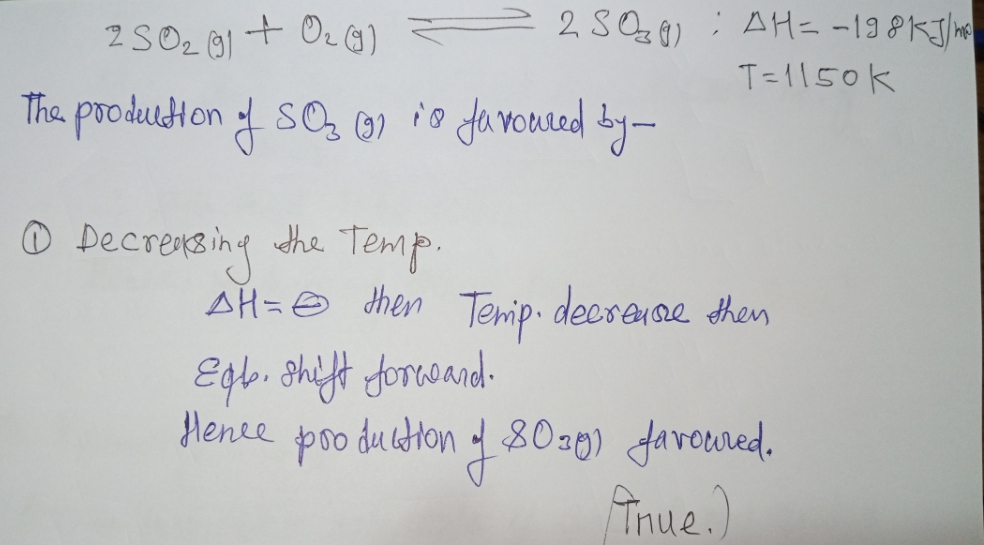 2SO₂(g) + O₂(g) ⇌ 2SO₃(g) ; ΔH = -198KJ/mo
T=1150K
The production of SO₃(g) is favoured by—
① Decreasing the Temp.
ΔH=⊖ then Temp. decrease then
Eqb. shift forward.
Hence production of SO₃(g) favoured.
(True.)